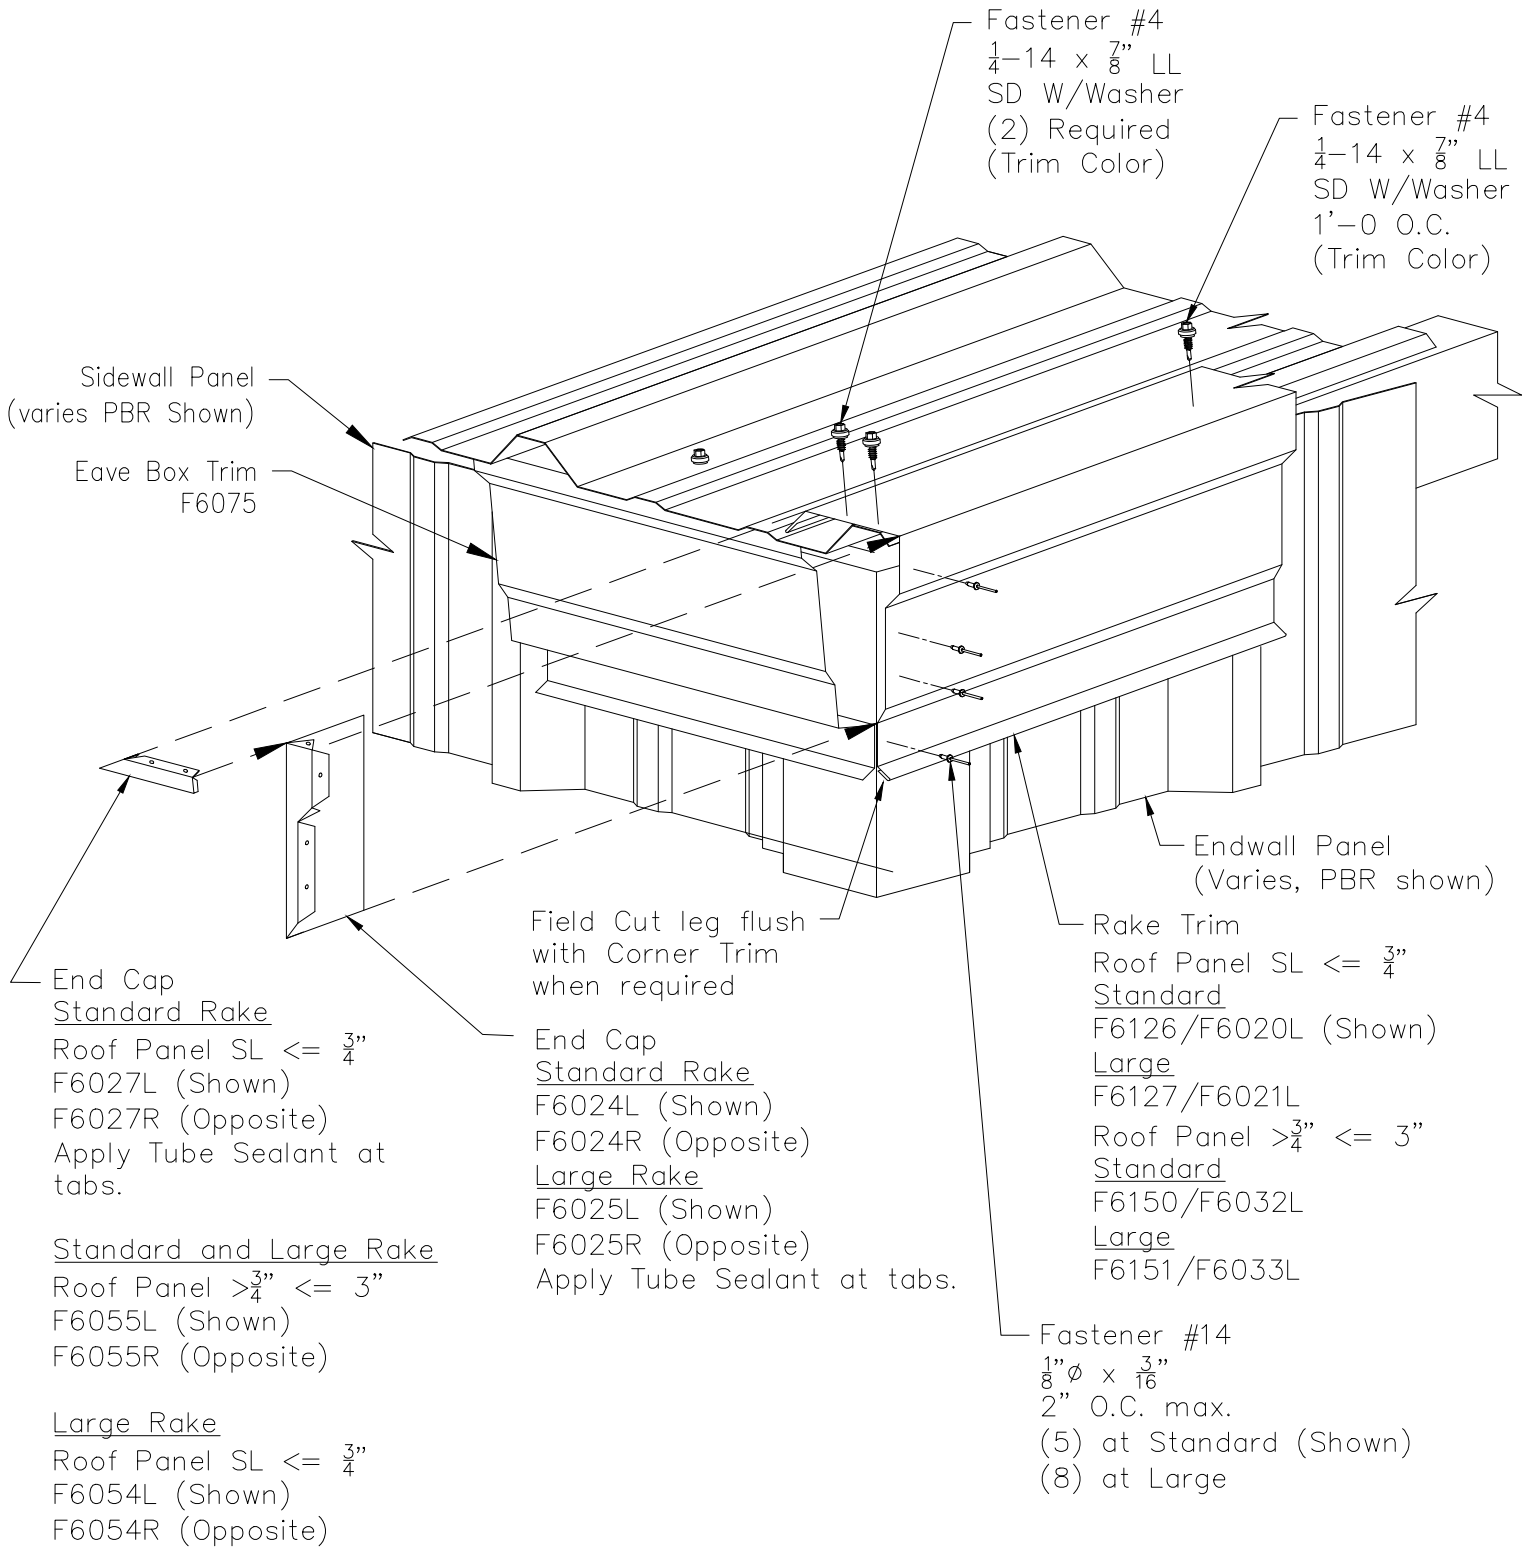 Fastener #4
1/4-14 x 7/8" LL
SD W/Washer
(2) Required
(Trim Color)
Fastener #4
1/4-14 x 7/8" LL
SD W/Washer
1'-0 O.C.
(Trim Color)
Sidewall Panel
(varies PBR Shown)
Eave Box Trim
F6075
Endwall Panel
(Varies, PBR shown)
Field Cut leg flush
with Corner Trim
when required
Rake Trim
Roof Panel SL <= 3/4"
Standard
F6126/F6020L (Shown)
Large
F6127/F6021L
Roof Panel >3/4" <= 3"
Standard
F6150/F6032L
Large
F6151/F6033L
End Cap
Standard Rake
Roof Panel SL <= 3/4"
F6027L (Shown)
F6027R (Opposite)
Apply Tube Sealant at
tabs.
Standard and Large Rake
Roof Panel >3/4" <= 3"
F6055L (Shown)
F6055R (Opposite)
Large Rake
Roof Panel SL <= 3/4"
F6054L (Shown)
F6054R (Opposite)
End Cap
Standard Rake
F6024L (Shown)
F6024R (Opposite)
Large Rake
F6025L (Shown)
F6025R (Opposite)
Apply Tube Sealant at tabs.
Fastener #14
1/8"ø x 3/16"
2" O.C. max.
(5) at Standard (Shown)
(8) at Large